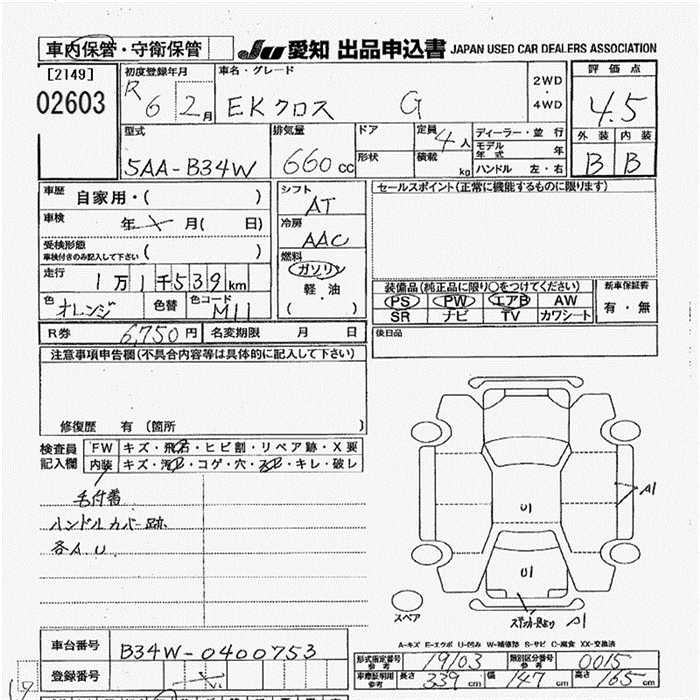 車内保管・守衛保管 JU 愛知 出品申込書 JAPAN USED CAR DEALERS ASSOCIATION
[2149]
02603
初度登録年月 車名・グレード
R 6 2月 EKクロス G
2WD・4WD
評価点
4.5
外装 内装
B B
型式 排気量 ドア 定員 4人 ディーラー・並行
5AA-B34W 660cc 形状 積載 kg モデル年式 年
ハンドル 左・右
車歴 自家用・( )
車検 年 月( 日)
受検形態 車検付きのみ記入して下さい ( )
走行 1万1千539km
色 オレンジ 色替 色コード M11
シフト AT
冷房 AAC
燃料 ガソリン 軽・油 ( )
セールスポイント(正常に機能するものに限ります)
装備品(純正品に限り○をつけてください) 新車保証書
PS PW エアB AW 有・無
SR ナビ TV カワシート
後日品
R券 6,750円 名変期限 月 日
注意事項申告欄(不具合内容等は具体的に記入して下さい)
修復歴 有 (箇所 )
検査員記入欄 FW キズ・飛石・ヒビ割・リペア跡・X要
内装 キズ・汚れ・コゲ・穴・スレ・キレ・破レ
毛付着
ハンドルカバー跡
各A.U.
A1
U1
U1
スペア A1
A-キズ E-エクボ U-凹み W-補修跡 S-サビ C-腐食 XX-交換済
車台番号 B34W-0400753
登録番号
型式指定番号 参考 19103 類別区分番号 参考 0015
車庫証明用 参考 長さ 339cm 幅 147cm 高さ 165cm